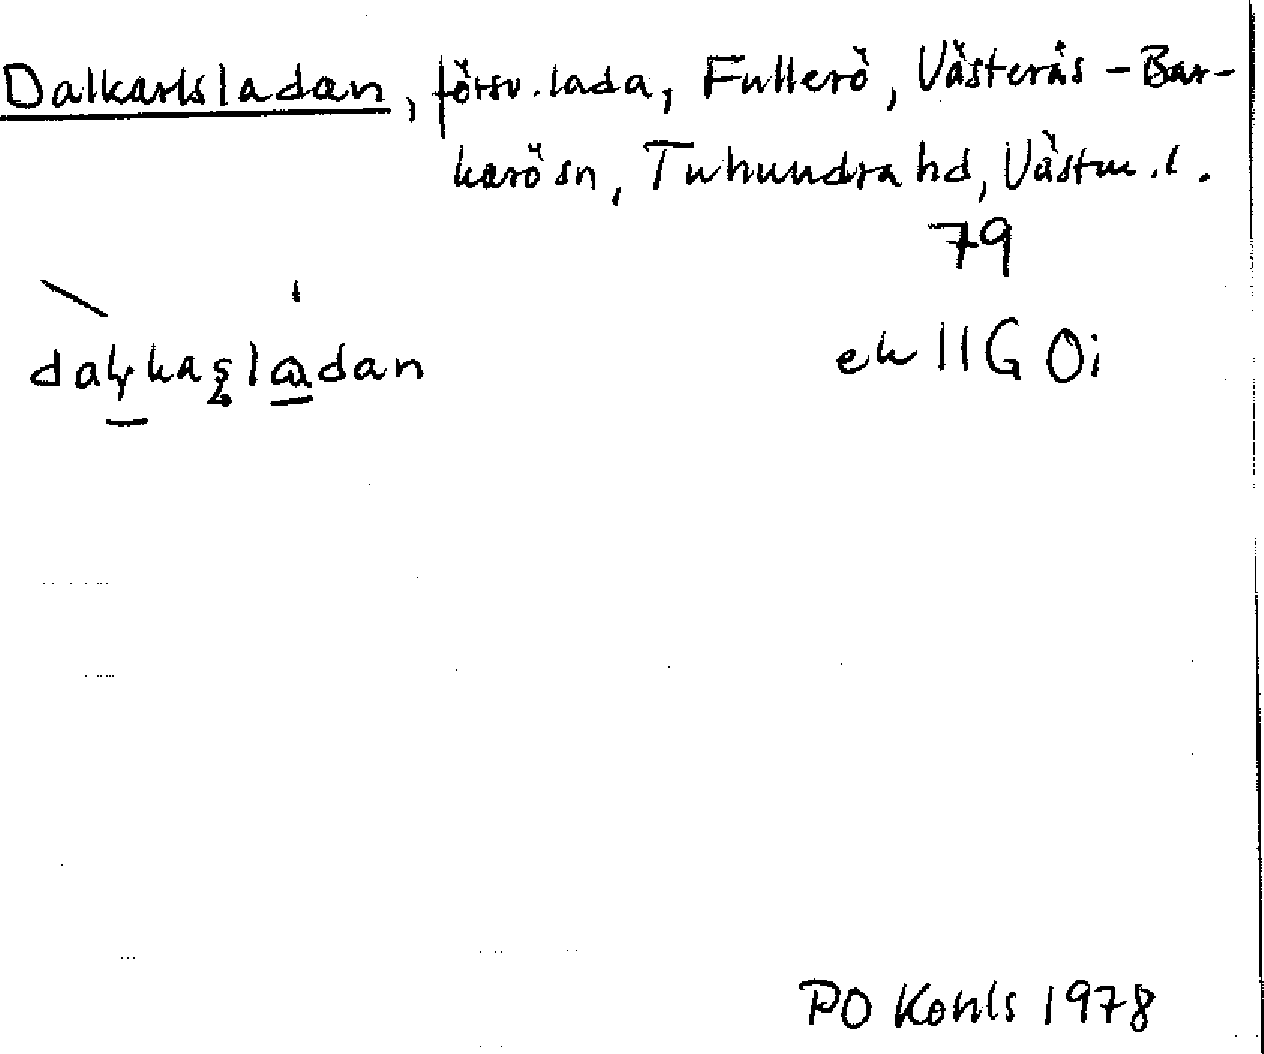 Dalkarlsladan, försv. lada, Fullerö, Västerås-Bar-
karö sn, Tuhundra hd, Västm. l.
79
dalkasladan
ek 11G 0i
PO Kohls 1978